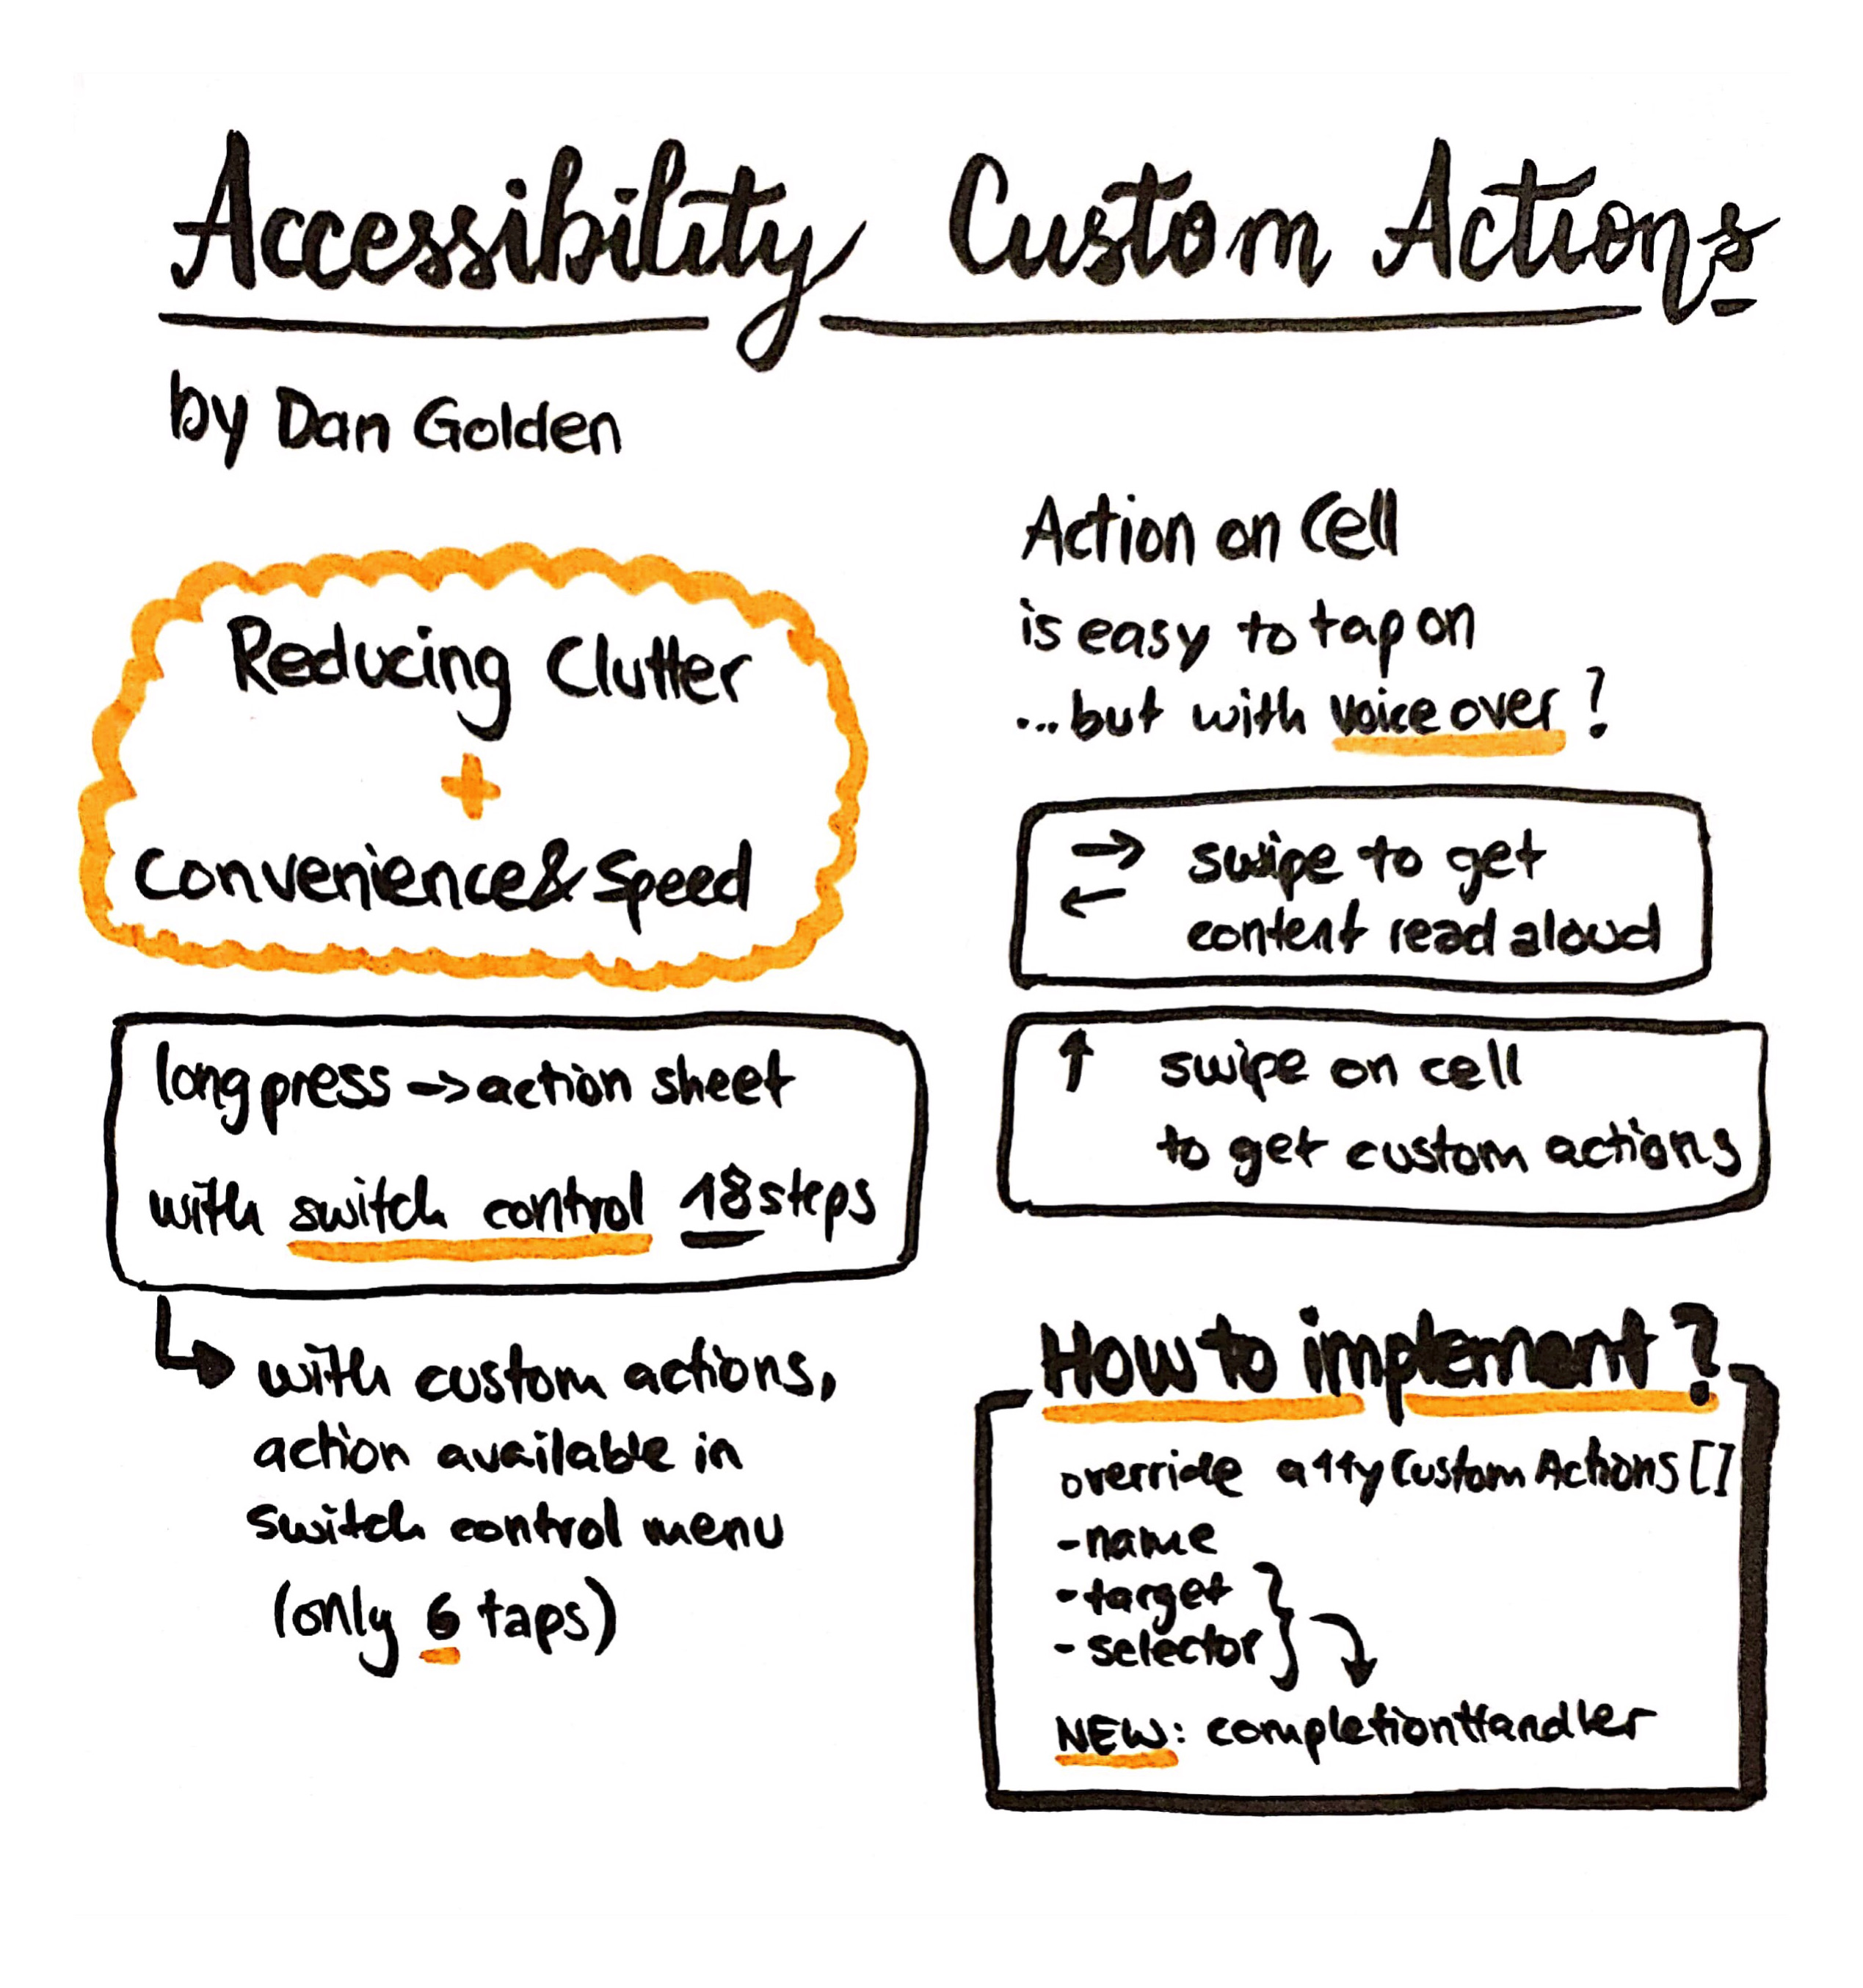 Accessibility Custom Actions
by Dan Golden
Reducing Clutter
+
Convenience & Speed
long press -> action sheet
with switch control 18 steps
with custom actions,
action available in
switch control menu
(only 6 taps)
Action on Cell
is easy to tap on
...but with voice over ?
→ swipe to get
← content read aloud
↑ swipe on cell
to get custom actions
How to implement?
override a11yCustomActions []
- name
- target
- selector
NEW: completionHandler